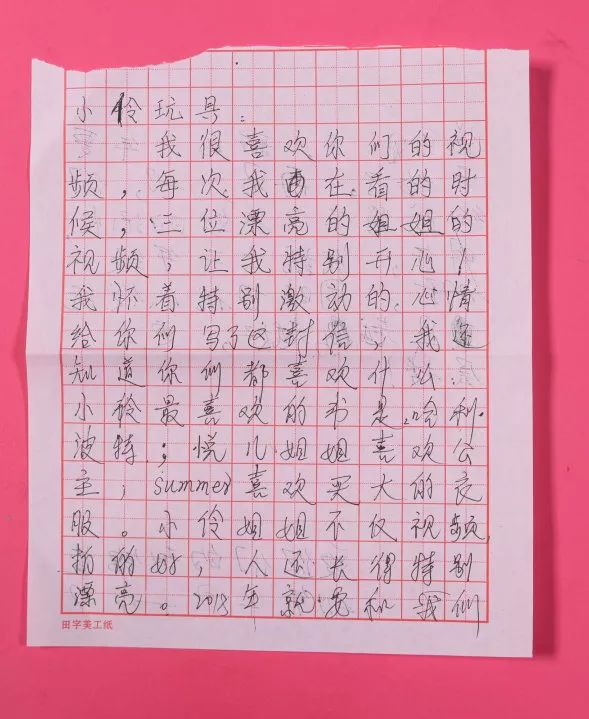 小伶玩具：
我很喜欢你们的视
频，每次我在看的时
候，三位漂亮的姐姐的
视频，让我特别开心！
我怀着特别激动的心情
给你们写了这封信，我还
知道你们都喜欢什么：
小伶最喜欢的书是哈利·
波特；悦儿姐姐喜欢公
主；summer喜欢买大的衣
服。小伶姐姐不仅视频
拍的好，人还长得特别
漂亮。2018年就要和我们
田字美工纸